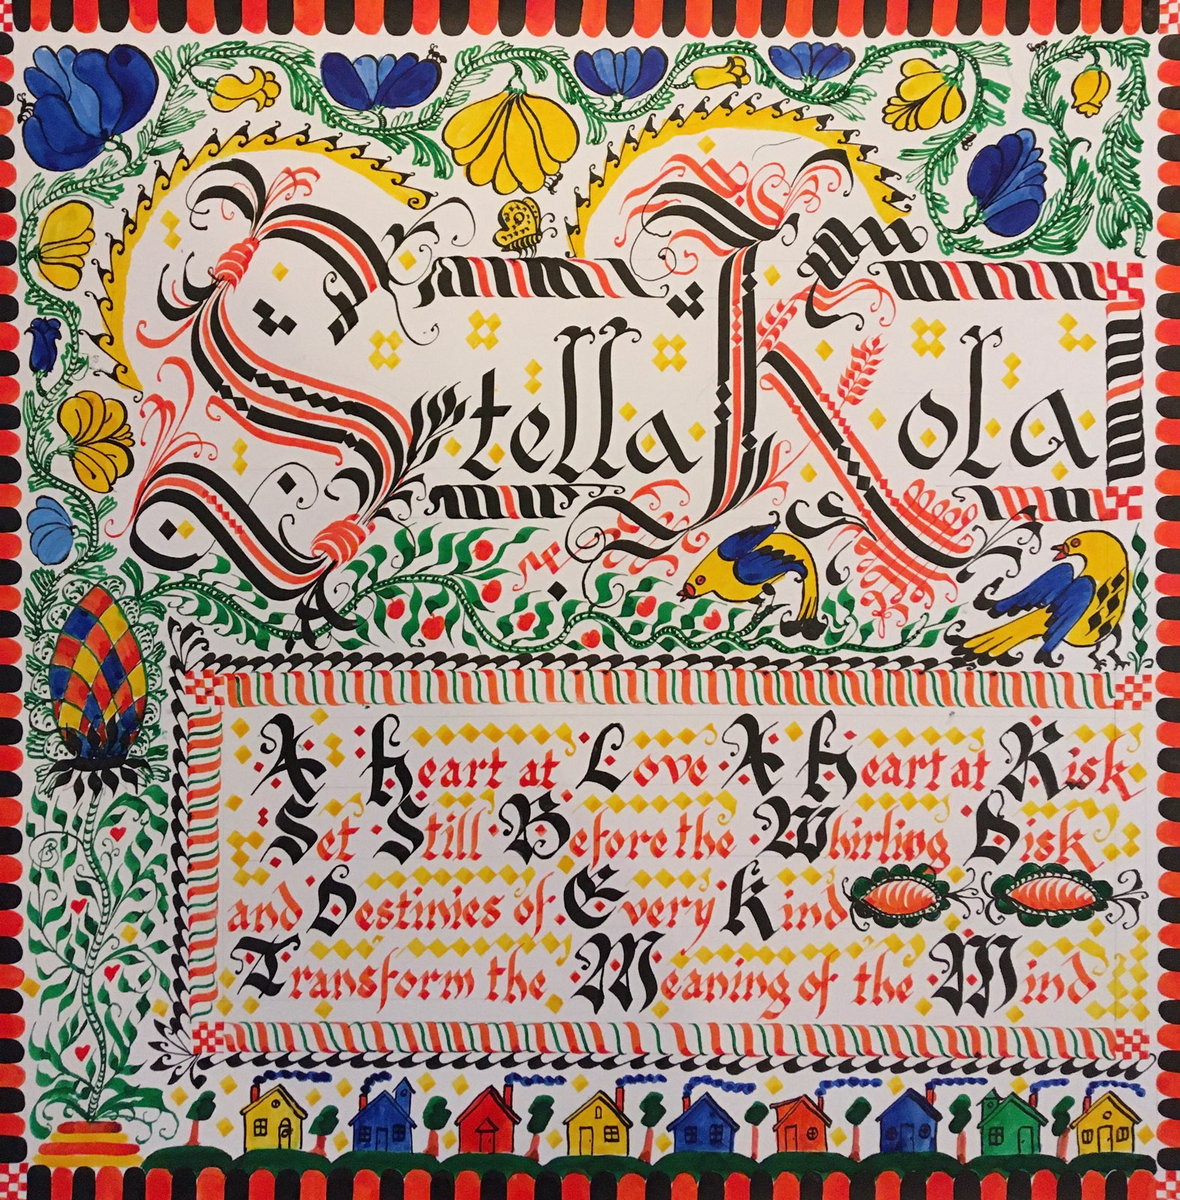 Stella Kola
A Heart at Love A Heart at Risk
Set Still Before the Whirling Disk
and Destinies of Every Kind
Transform the Meaning of the Mind